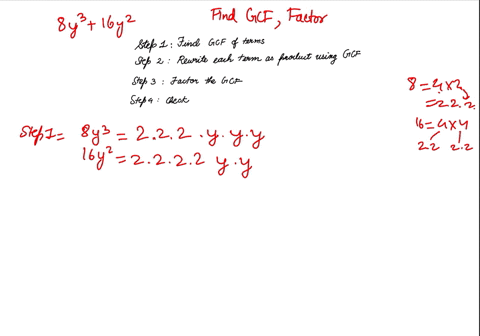 8y³ + 16y²
Find GCF, Factor
Step 1: Find GCF of terms
Step 2: Rewrite each term as product using GCF
Step 3: Factor the GCF
Step 4: Check
8 = 4 × 2
= 2.2.2
16 = 4 × 4
2.2 2.2
Step 1 = 8y³ = 2.2.2 . y. y. y
16y² = 2.2.2.2 y. y